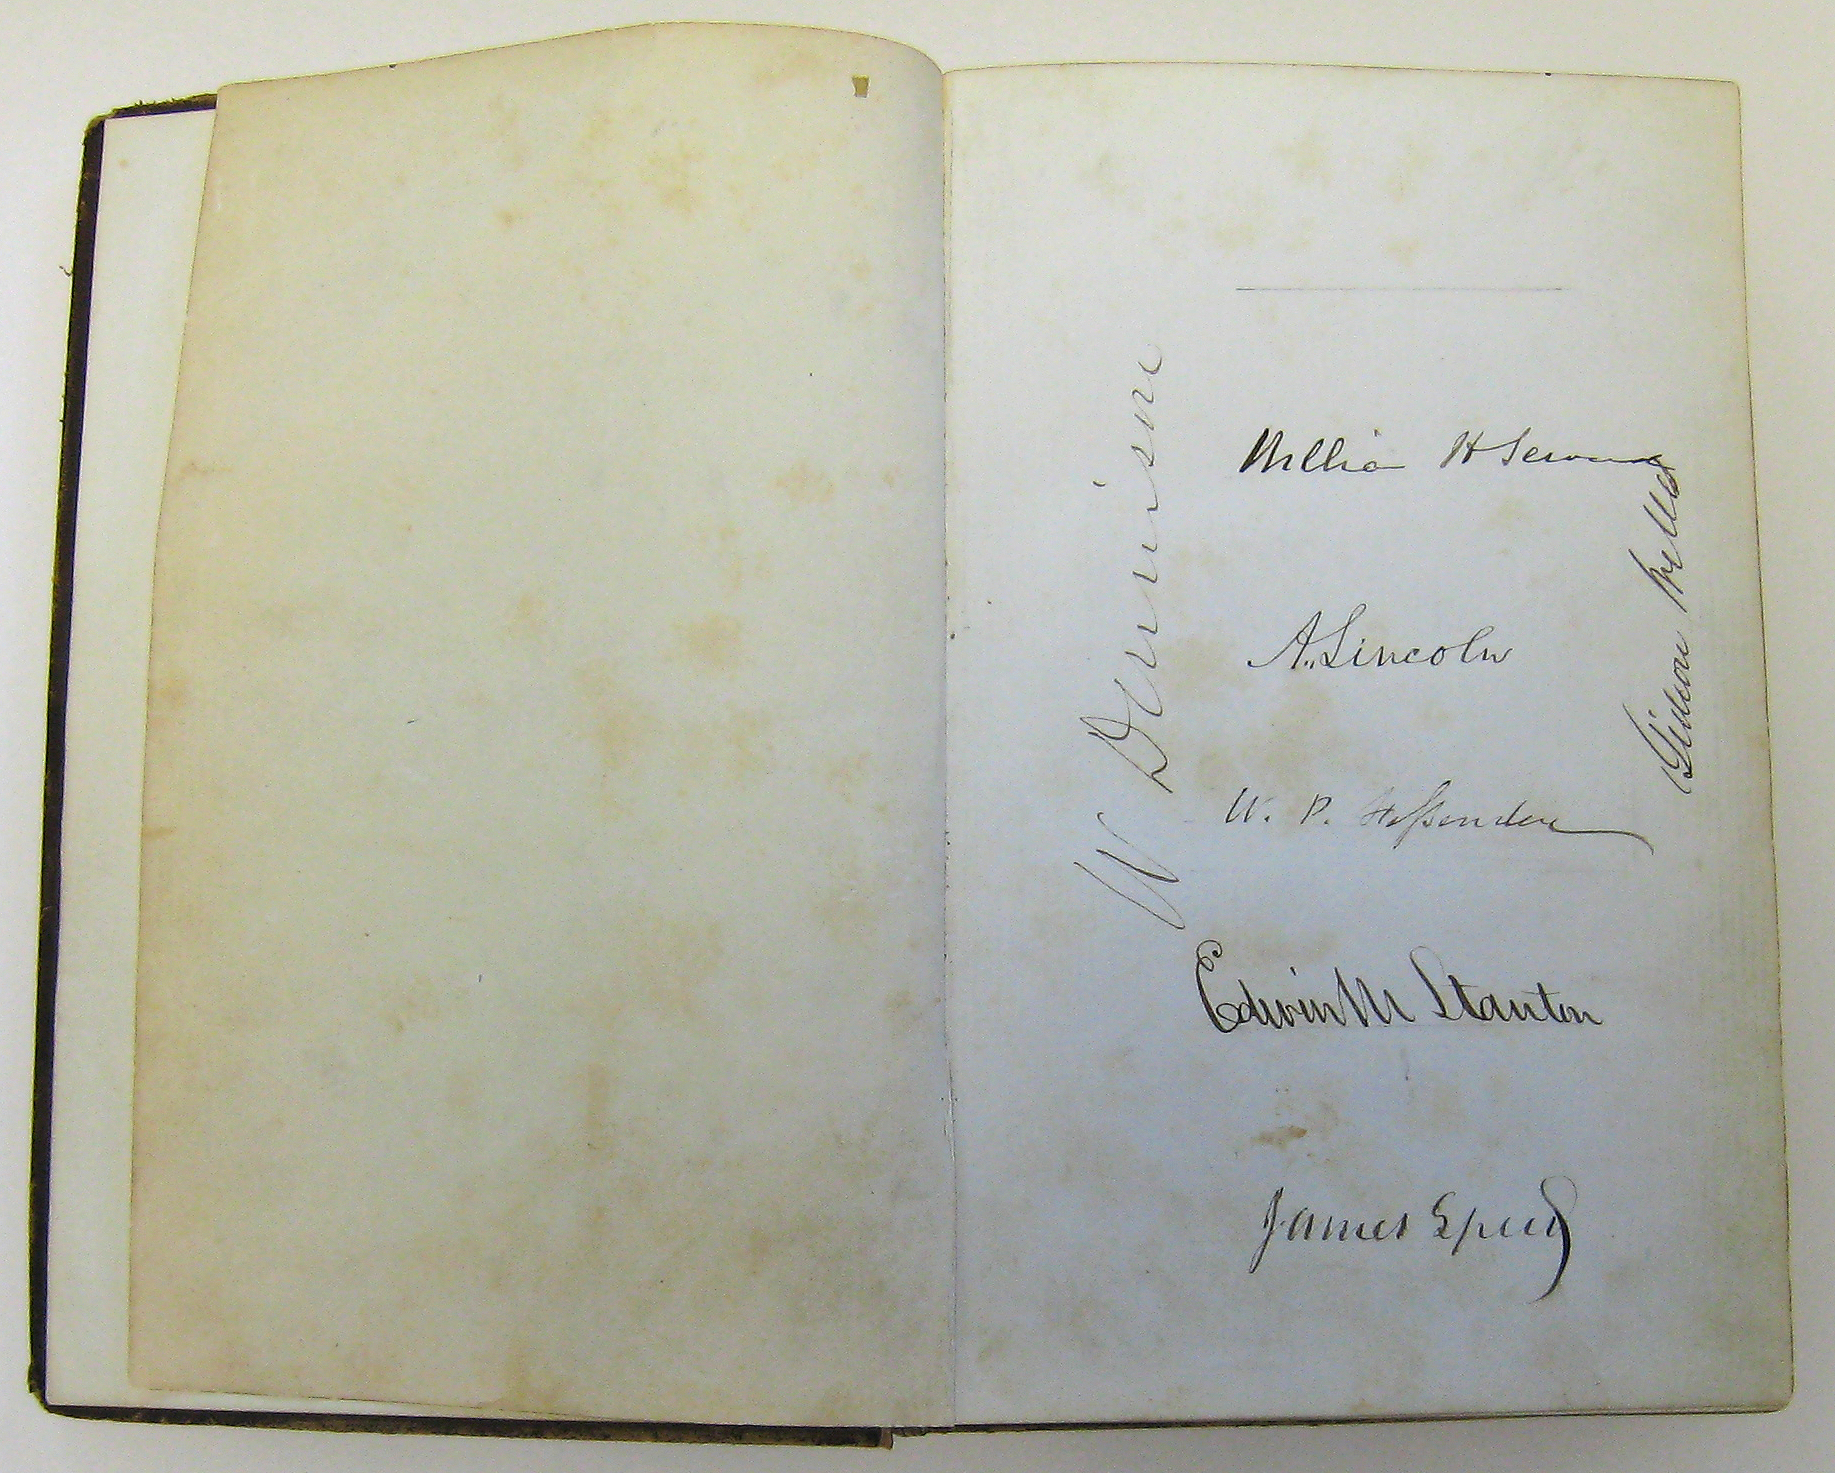 William H Seward
A. Lincoln
W. P. Fessenden
Edwin M Stanton
James Speed
W Dennison
Gideon Welles